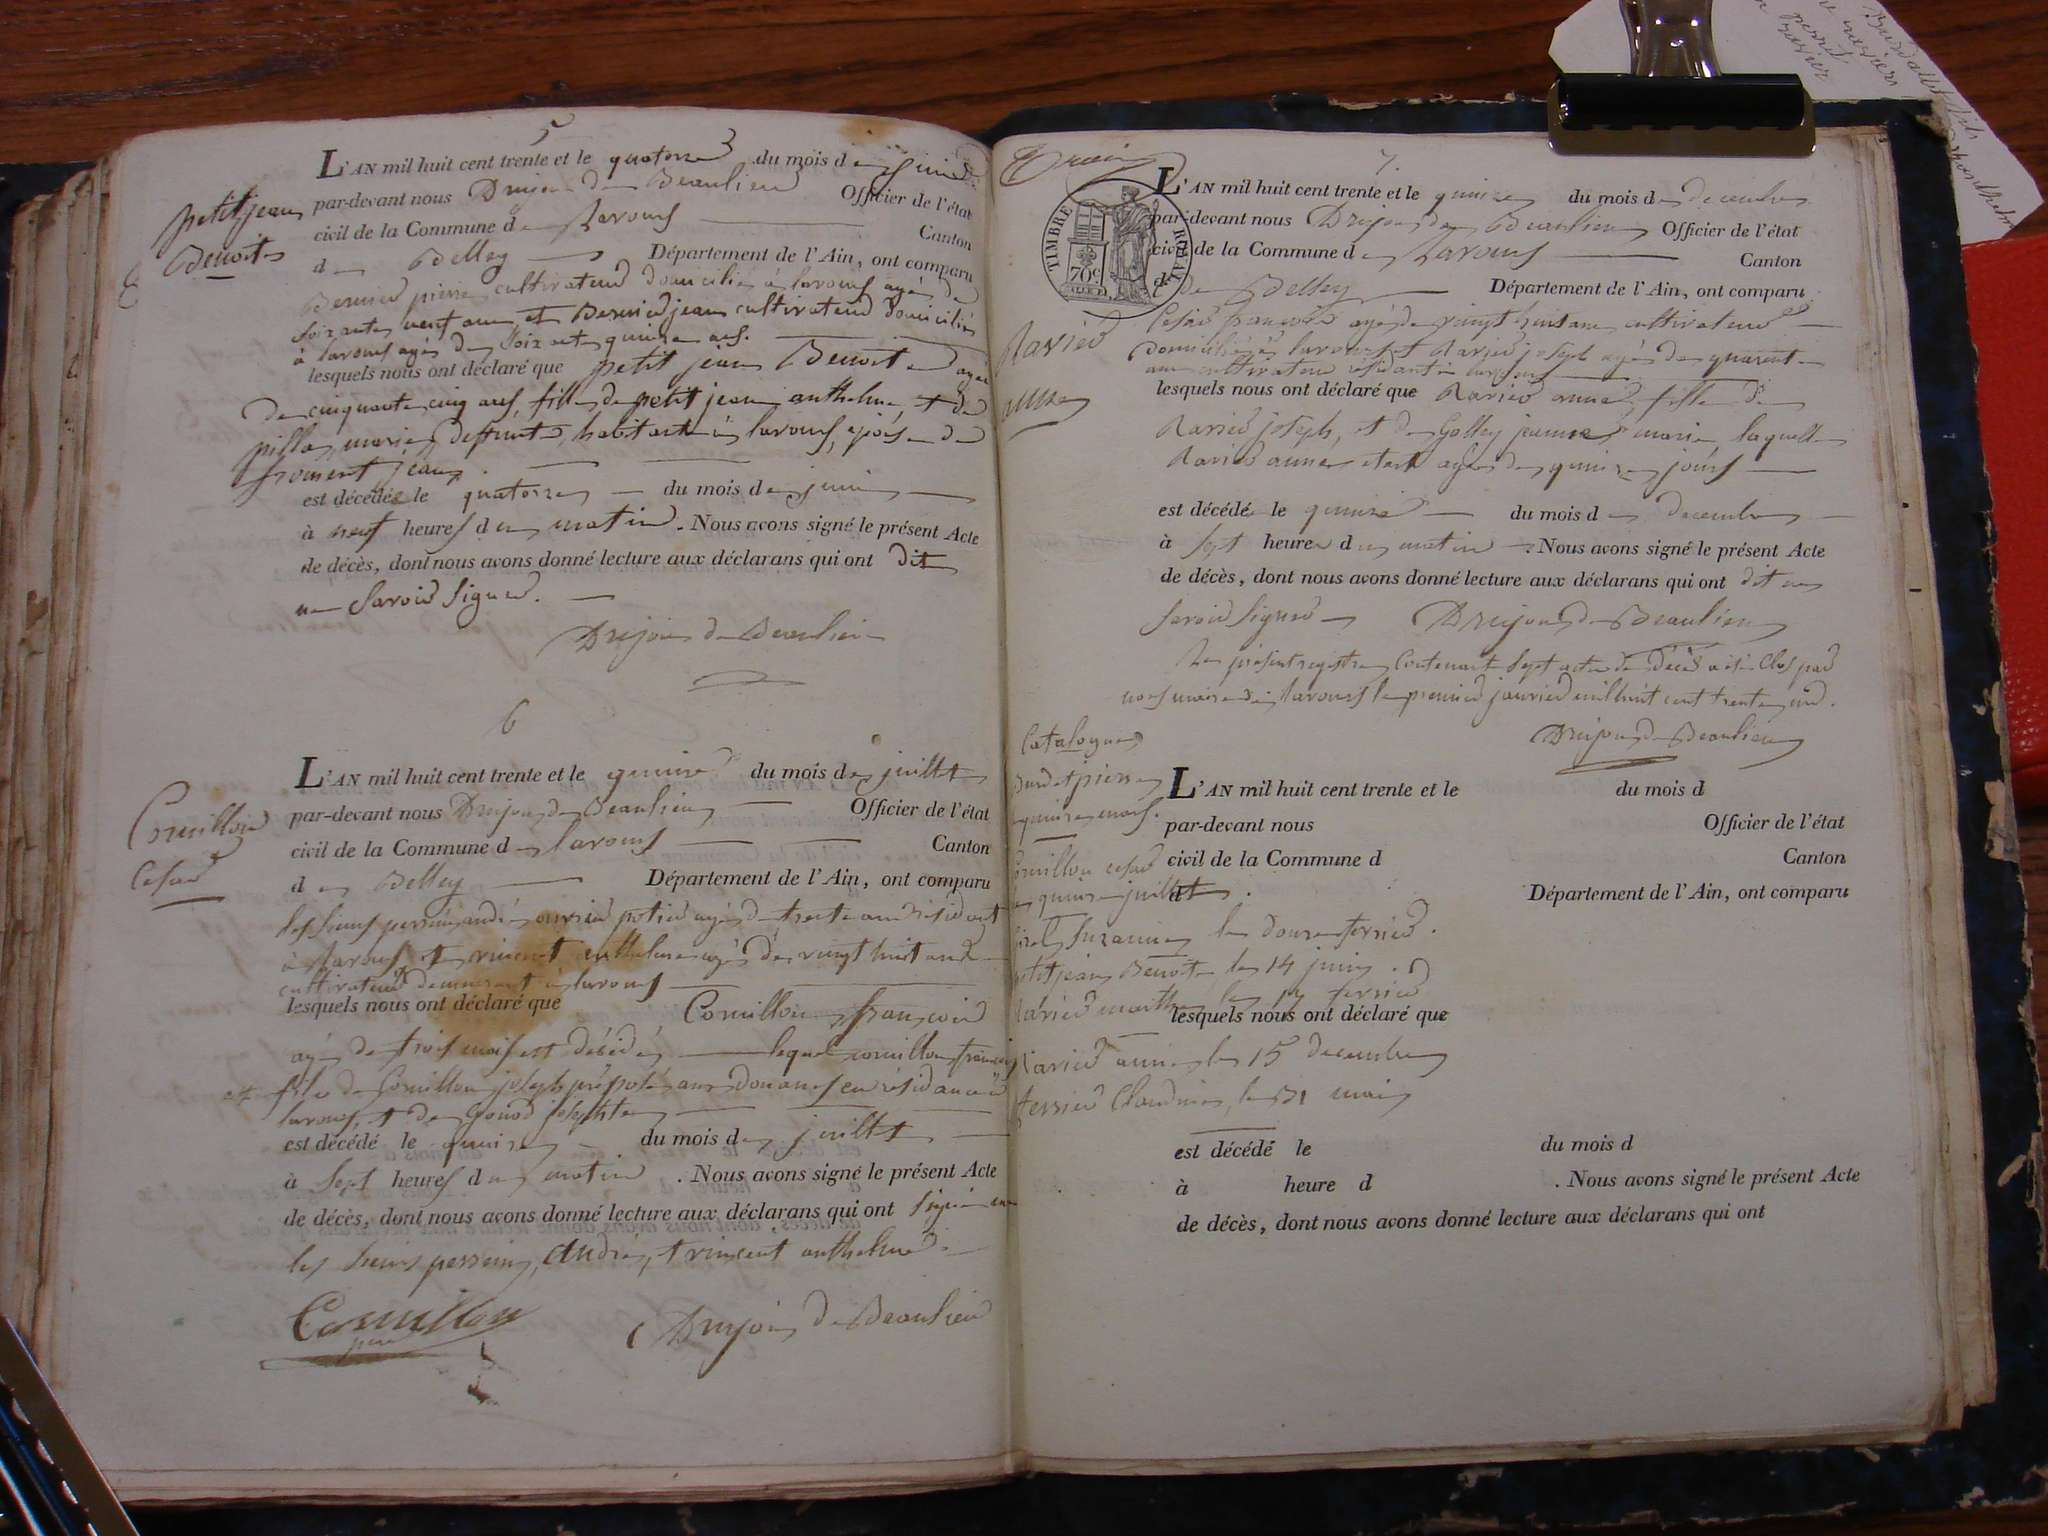 5
L'AN mil huit cent trente et le quatorze du mois de juin
par-devant nous Drujon de Beaulieu Officier de l'état
petitjean
civil de la Commune de Lavours Canton
Benoite
de Belley Département de l'Ain, ont comparu
Bernier pierre cultivateur domicilié à lavours agé de
soixante neuf ans et Bernier jean cultivateur domicilié
à lavours agés de soixante quinze ans.
lesquels nous ont déclaré que petit jean Benoite agée
de cinquante cinq ans, fille de petit jean anthelme, et de
pilla marie, deffunts habitants à lavours, épouse de
froment jean.
est décédée le quatorze du mois de juin
à neuf heures du matin. Nous avons signé le présent Acte
de décès, dont nous avons donné lecture aux déclarans qui ont dit
ne savoir signer.
Drujon de Beaulieu
6
L'AN mil huit cent trente et le quinze du mois de juillet
par-devant nous Drujon de Beaulieu Officier de l'état
Cornillon
civil de la Commune de lavours Canton
Cesar
de Belley Département de l'Ain, ont comparu
les sieurs perrein andré ouvrier potier agé de trente ans résidant
à lavours et vincent anthelme agé de vingt huit ans
cultivateur demeurant à lavours
lesquels nous ont déclaré que Cornillon françois
agé de trois mois est décédé lequel cornillon françois
est fils de Cornillon joseph préposé aux douanes en résidance à
lavours, et de Gonod josephte
est décédé le quinze du mois de juillet
à sept heures du matin. Nous avons signé le présent Acte
de décès, dont nous avons donné lecture aux déclarans qui ont signé avec
les sieurs perrein, andré, et vincent anthelme.
Cornillon
pere
Drujon de Beaulieu
7.
TIMBRE ROYAL
70c
L'AN mil huit cent trente et le quinze du mois de decembre
par-devant nous Drujon de Beaulieu Officier de l'état
civil de la Commune de Lavours Canton
de Belley Département de l'Ain, ont comparu
Cesar françois agé de vingt huit ans cultivateur
Ravier
domicilié à lavours et Ravier joseph agé de quarante
ans cultivateur résidant à lavours
anne
lesquels nous ont déclaré que Ravier anne, fille de
Ravier joseph, et de Golley jeanne marie, laquelle
Ravier anne etant agée de quinze jours
est décédé le quinze du mois de decembre
à sept heure du matin. Nous avons signé le présent Acte
de décès, dont nous avons donné lecture aux déclarans qui ont dit ne
savoir signer Drujon de Beaulieu
Le présent registre Contenant sept actes de décès a été Clos par
nous maire de lavours le premier janvier mil huit cent trente un.
Drujon de Beaulieu
Catalogue
pierre
quinze mars.
L'AN mil huit cent trente et le du mois d
par-devant nous Officier de l'état
civil de la Commune d Canton
d Département de l'Ain, ont comparu
Cornillon cesar
le quinze juillet.
Suzanne le douze fevrier.
petitjean Benoite le 14 juin.
Ravier marthe le 17 fevrier
lesquels nous ont déclaré que
Ravier anne le 15 decembre
Claudine, le 31 mai
est décédé le du mois d
à heure d . Nous avons signé le présent Acte
de décès, dont nous avons donné lecture aux déclarans qui ont